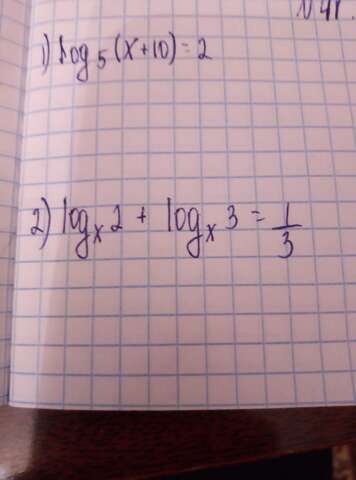 1) log₅(x+10) = 2
2) logₓ2 + logₓ3 = 1/3